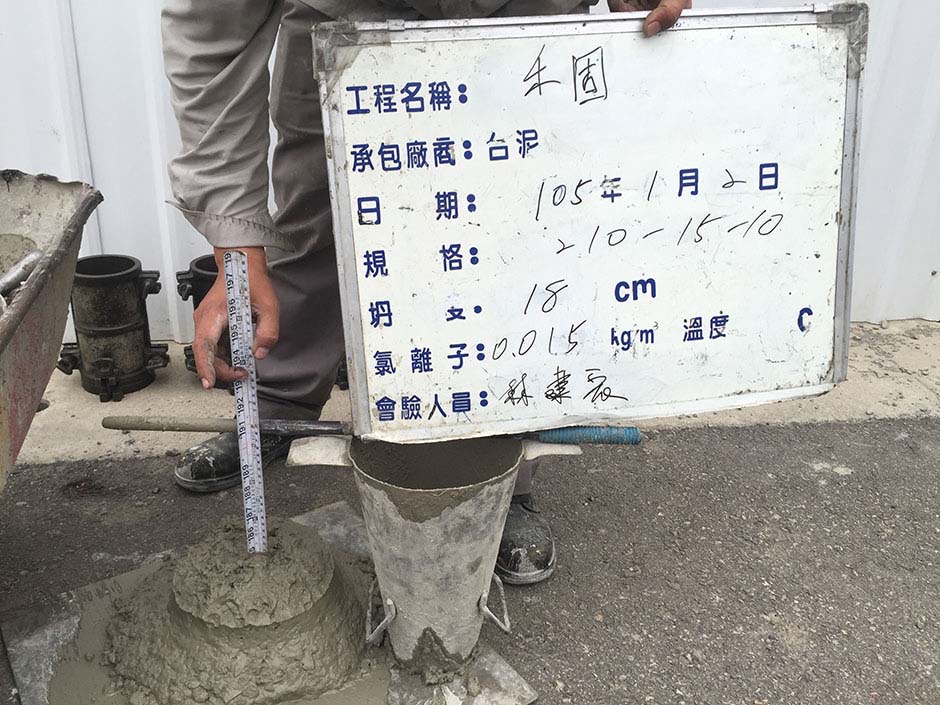 工程名稱: 禾固
承包廠商: 台泥
日 期: 105年1月2日
規 格: 210-15-10
坍 度: 18 cm
氯離子: 0.015 kg/m³ 溫度 C
會驗人員: 林建宏
197
196
195
194
192
191
189
188
187
186